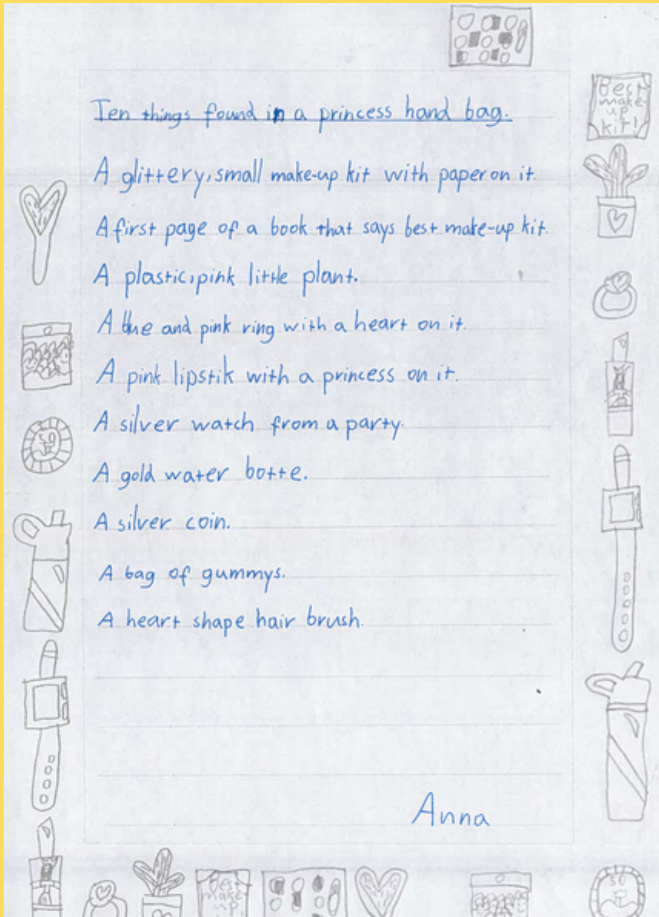 Best
make-
up
kit!
Ten things found in a princess hand bag.
A glittery, small make-up kit with paper on it.
A first page of a book that says best make-up kit.
A plastic, pink little plant.
A blue and pink ring with a heart on it.
A pink lipstik with a princess on it.
A silver watch from a party.
A gold water botte.
A silver coin.
A bag of gummys.
A heart shape hair brush.
50
Anna
Best
make-
up
50